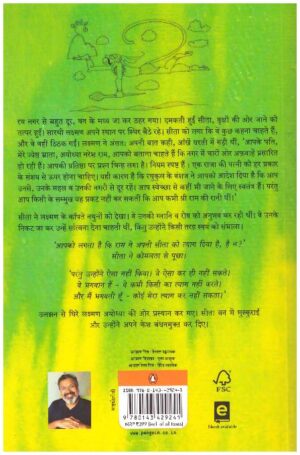 रथ नगर से बहुत दूर, वन के मध्य जा कर ठहर गया। दमकती हुई सीता, वृक्षों की ओर जाने को
तत्पर हुईं। सारथी लक्ष्मण अपने स्थान पर स्थिर बैठे रहे। सीता को लगा कि वे कुछ कहना चाहते हैं,
और वे वहीं ठिठक गईं। लक्ष्मण ने अंततः अपनी बात कही, आँखें धरती में गड़ी थीं, 'आपके पति,
मेरे ज्येष्ठ भ्राता, अयोध्या नरेश राम, आपको बताना चाहते हैं कि नगर में चारों ओर अफ़वाहें प्रसारित
हो रही हैं। आपकी प्रतिष्ठा पर प्रश्न चिन्ह लगा है। नियम स्पष्ट है। एक राजा की पत्नी को हर प्रकार
के संशय से ऊपर होना चाहिए। यही कारण है कि रघुकुल के वंशज ने आपको आदेश दिया है कि आप
उनसे, उनके महल व उनकी नगरी से दूर रहें। आप स्वेच्छा से कहीं भी जाने के लिए स्वतंत्र हैं। परंतु
आप किसी के सम्मुख यह प्रकट नहीं कर सकतीं कि आप कभी श्री राम की रानी थीं।'
सीता ने लक्ष्मण के काँपते नथुनों को देखा। वे उनकी ग्लानि व रोष को अनुभव कर रही थीं। वे उनके
निकट जा कर उन्हें सांत्वना देना चाहती थीं, किंतु उन्होंने किसी तरह स्वयं को संभाला।
'आपको लगता है कि राम ने अपनी सीता को त्याग दिया है, है न?'
सीता ने कोमलता से पूछा।
'परंतु उन्होंने ऐसा नहीं किया। वे ऐसा कर ही नहीं सकते।
वे भगवान हैं - वे कभी किसी का त्याग नहीं करते।
और मैं भगवती हूँ - कोई मेरा त्याग कर नहीं सकता।'
उलझन से घिरे लक्ष्मण अयोध्या की ओर प्रस्थान कर गए। सीता वन में मुस्कुराईं
और उन्होंने अपने केश बंधनमुक्त कर दिए।
FSC
e
ISBN 978-0-143-42924-1
9 780143 429241
www.penguin.co.in